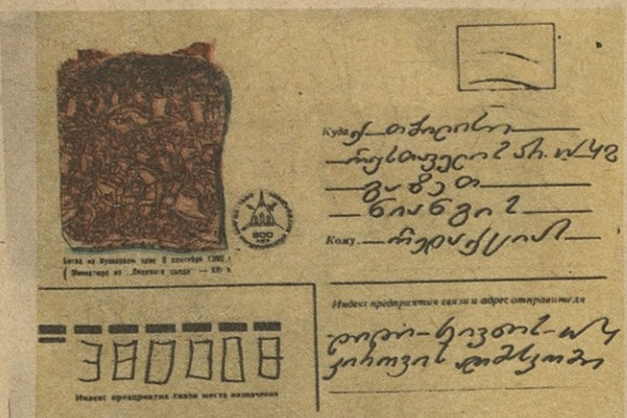 Битва на Куликовом поле 8 сентября 1380 г.
(Миниатюра из „Лицевого свода" — XVI в.
600
ЛЕТ
Куда ქ. თბილისი
რუსთაველის პრ. № 42
გაზეთ
ნიანგის
Кому რედაქციას
Индекс предприятия связи и адрес отправителя
კიროვის
380008
Индекс предприятия связи места назначения